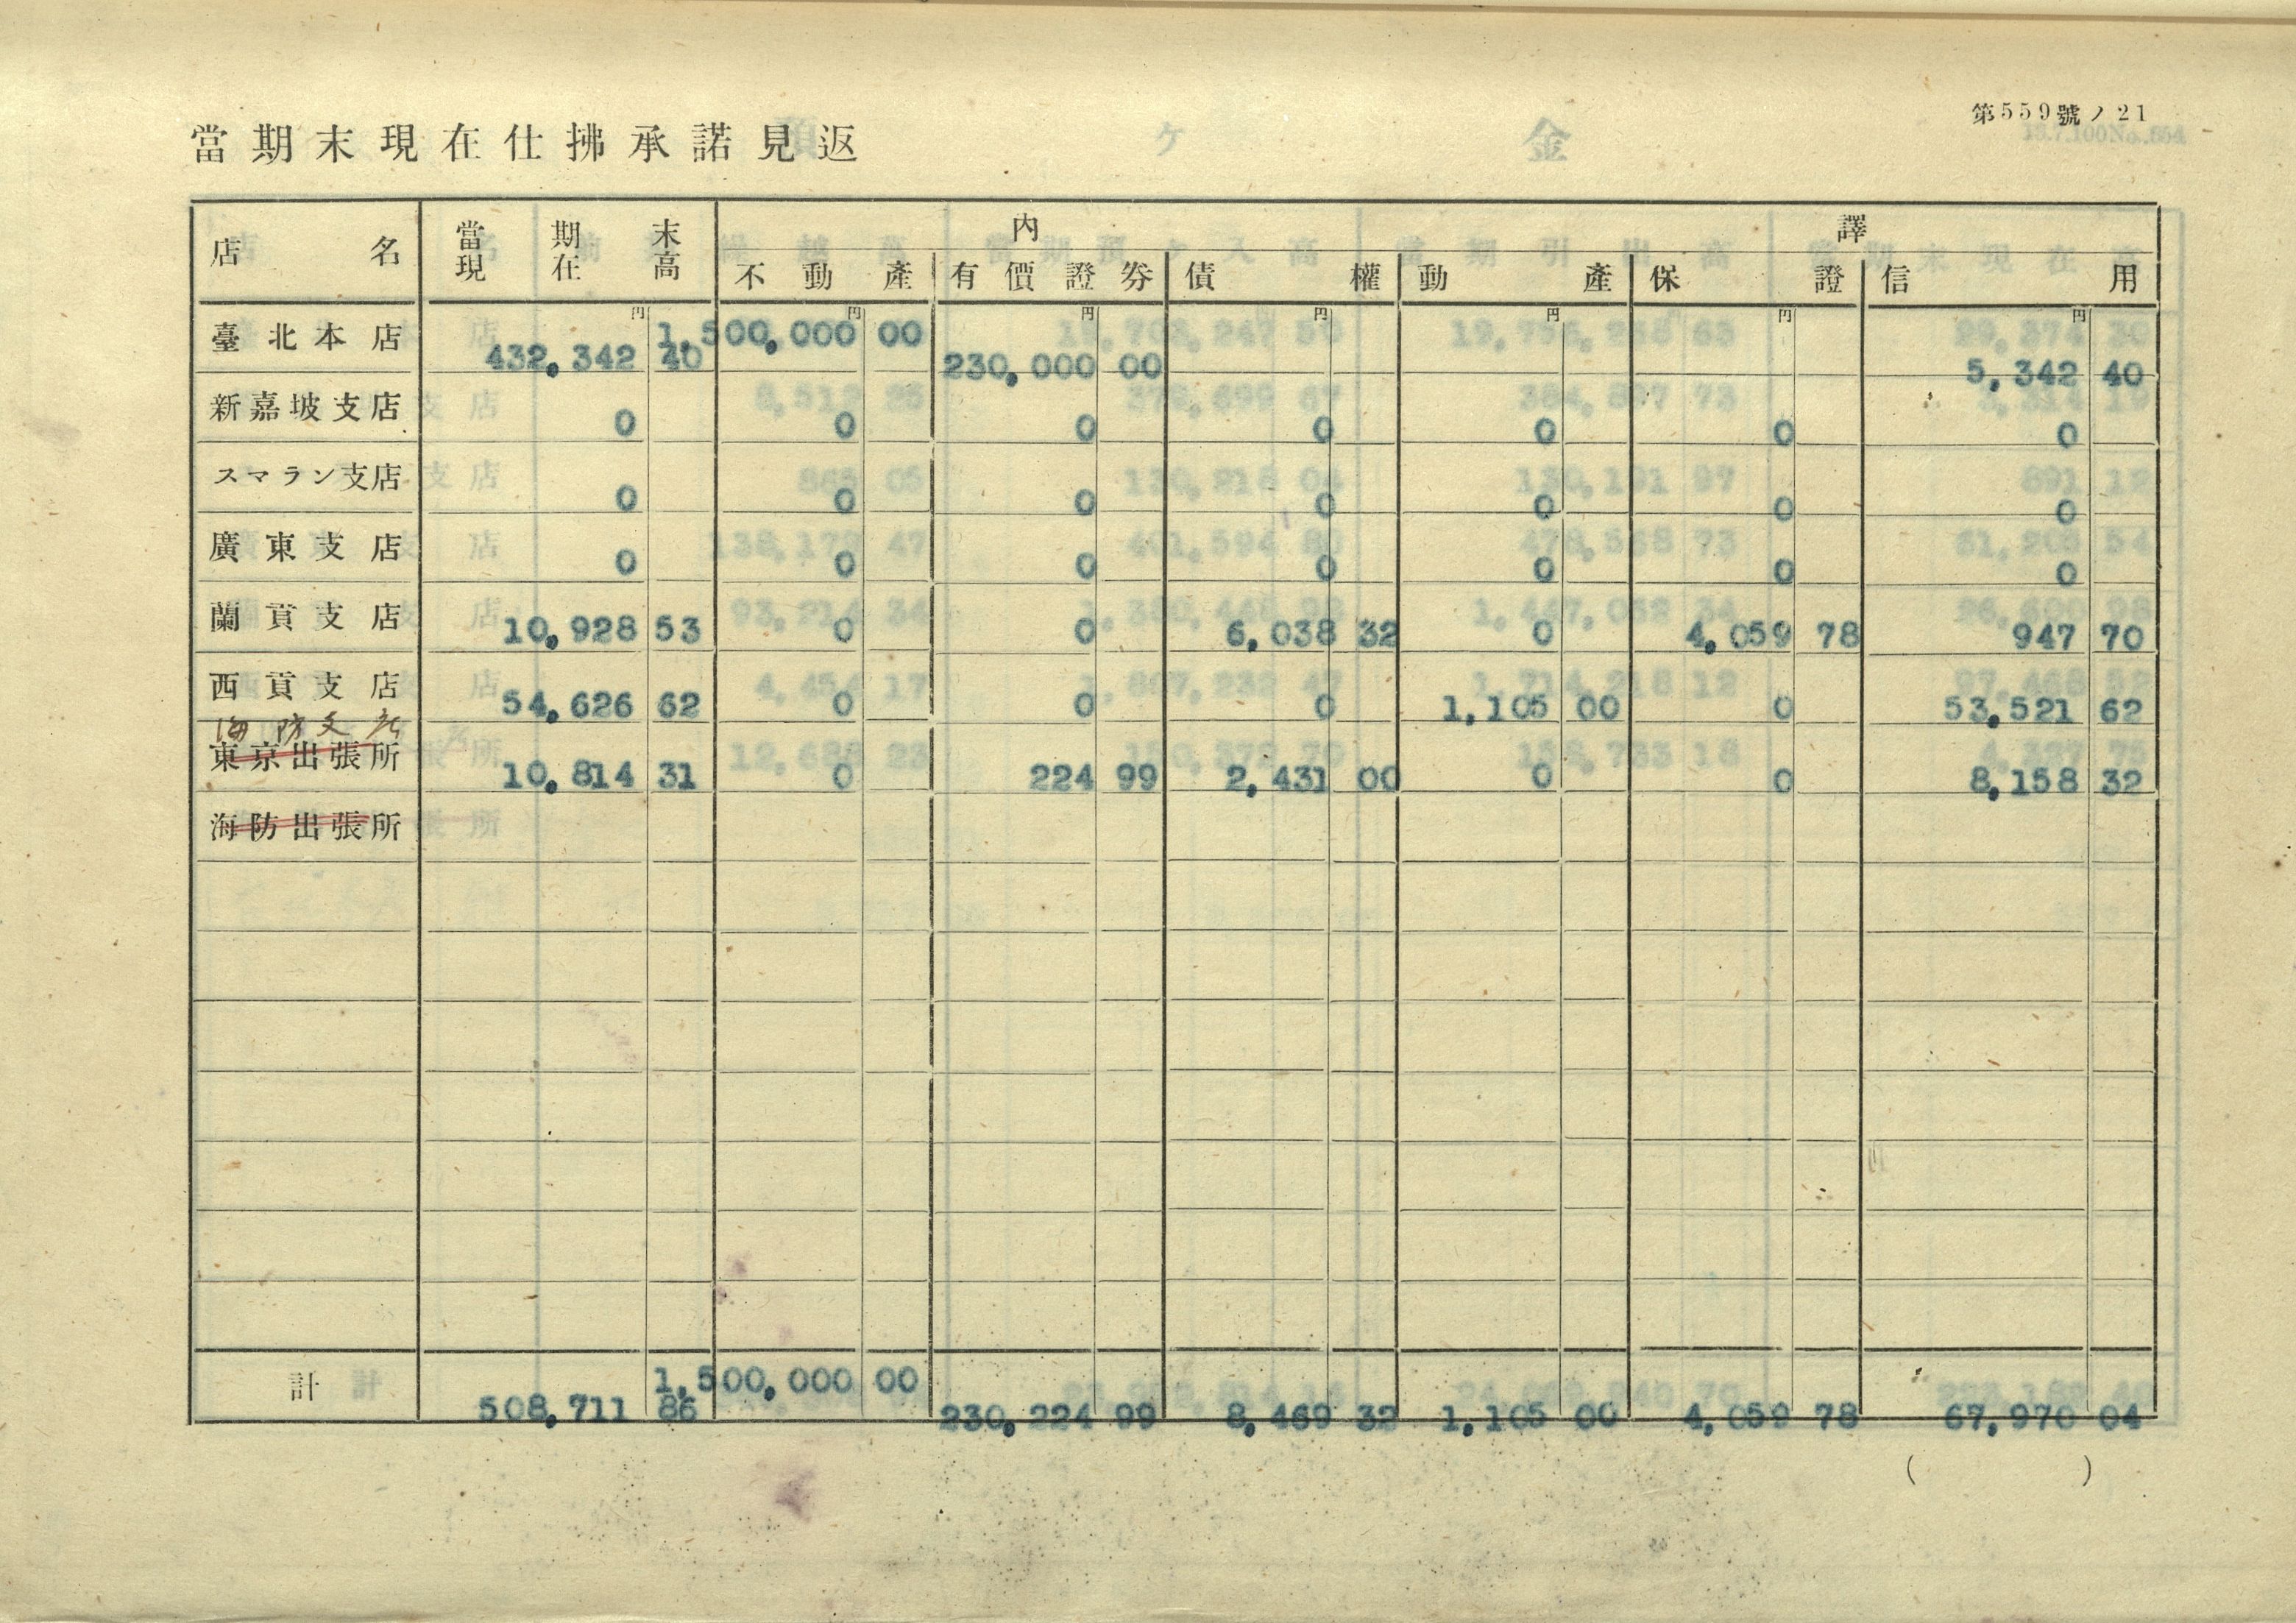 第559號ノ21
當期末現在仕拂承諾見返
店名 當期末現在高 內譯
不動產 有價證券 債權 動產 保證 信用
円 円 円 円 円 円 円
臺北本店 432,342 40 1,500,000 00 230,000 00 5,342 40
新嘉坡支店 0 0 0 0 0 0 0
スマラン支店 0 0 0 0 0 0 0
廣東支店 0 0 0 0 0 0 0
蘭貢支店 10,928 53 0 0 6,038 32 0 4,059 78 947 70
西貢支店 54,626 62 0 0 0 1,105 00 0 53,521 62
海防支店
東京出張所 10,814 31 0 224 99 2,431 00 0 0 8,158 32
海防出張所
計 508,711 86 1,500,000 00 230,224 99 8,469 32 1,105 00 4,059 78 67,970 04
( )